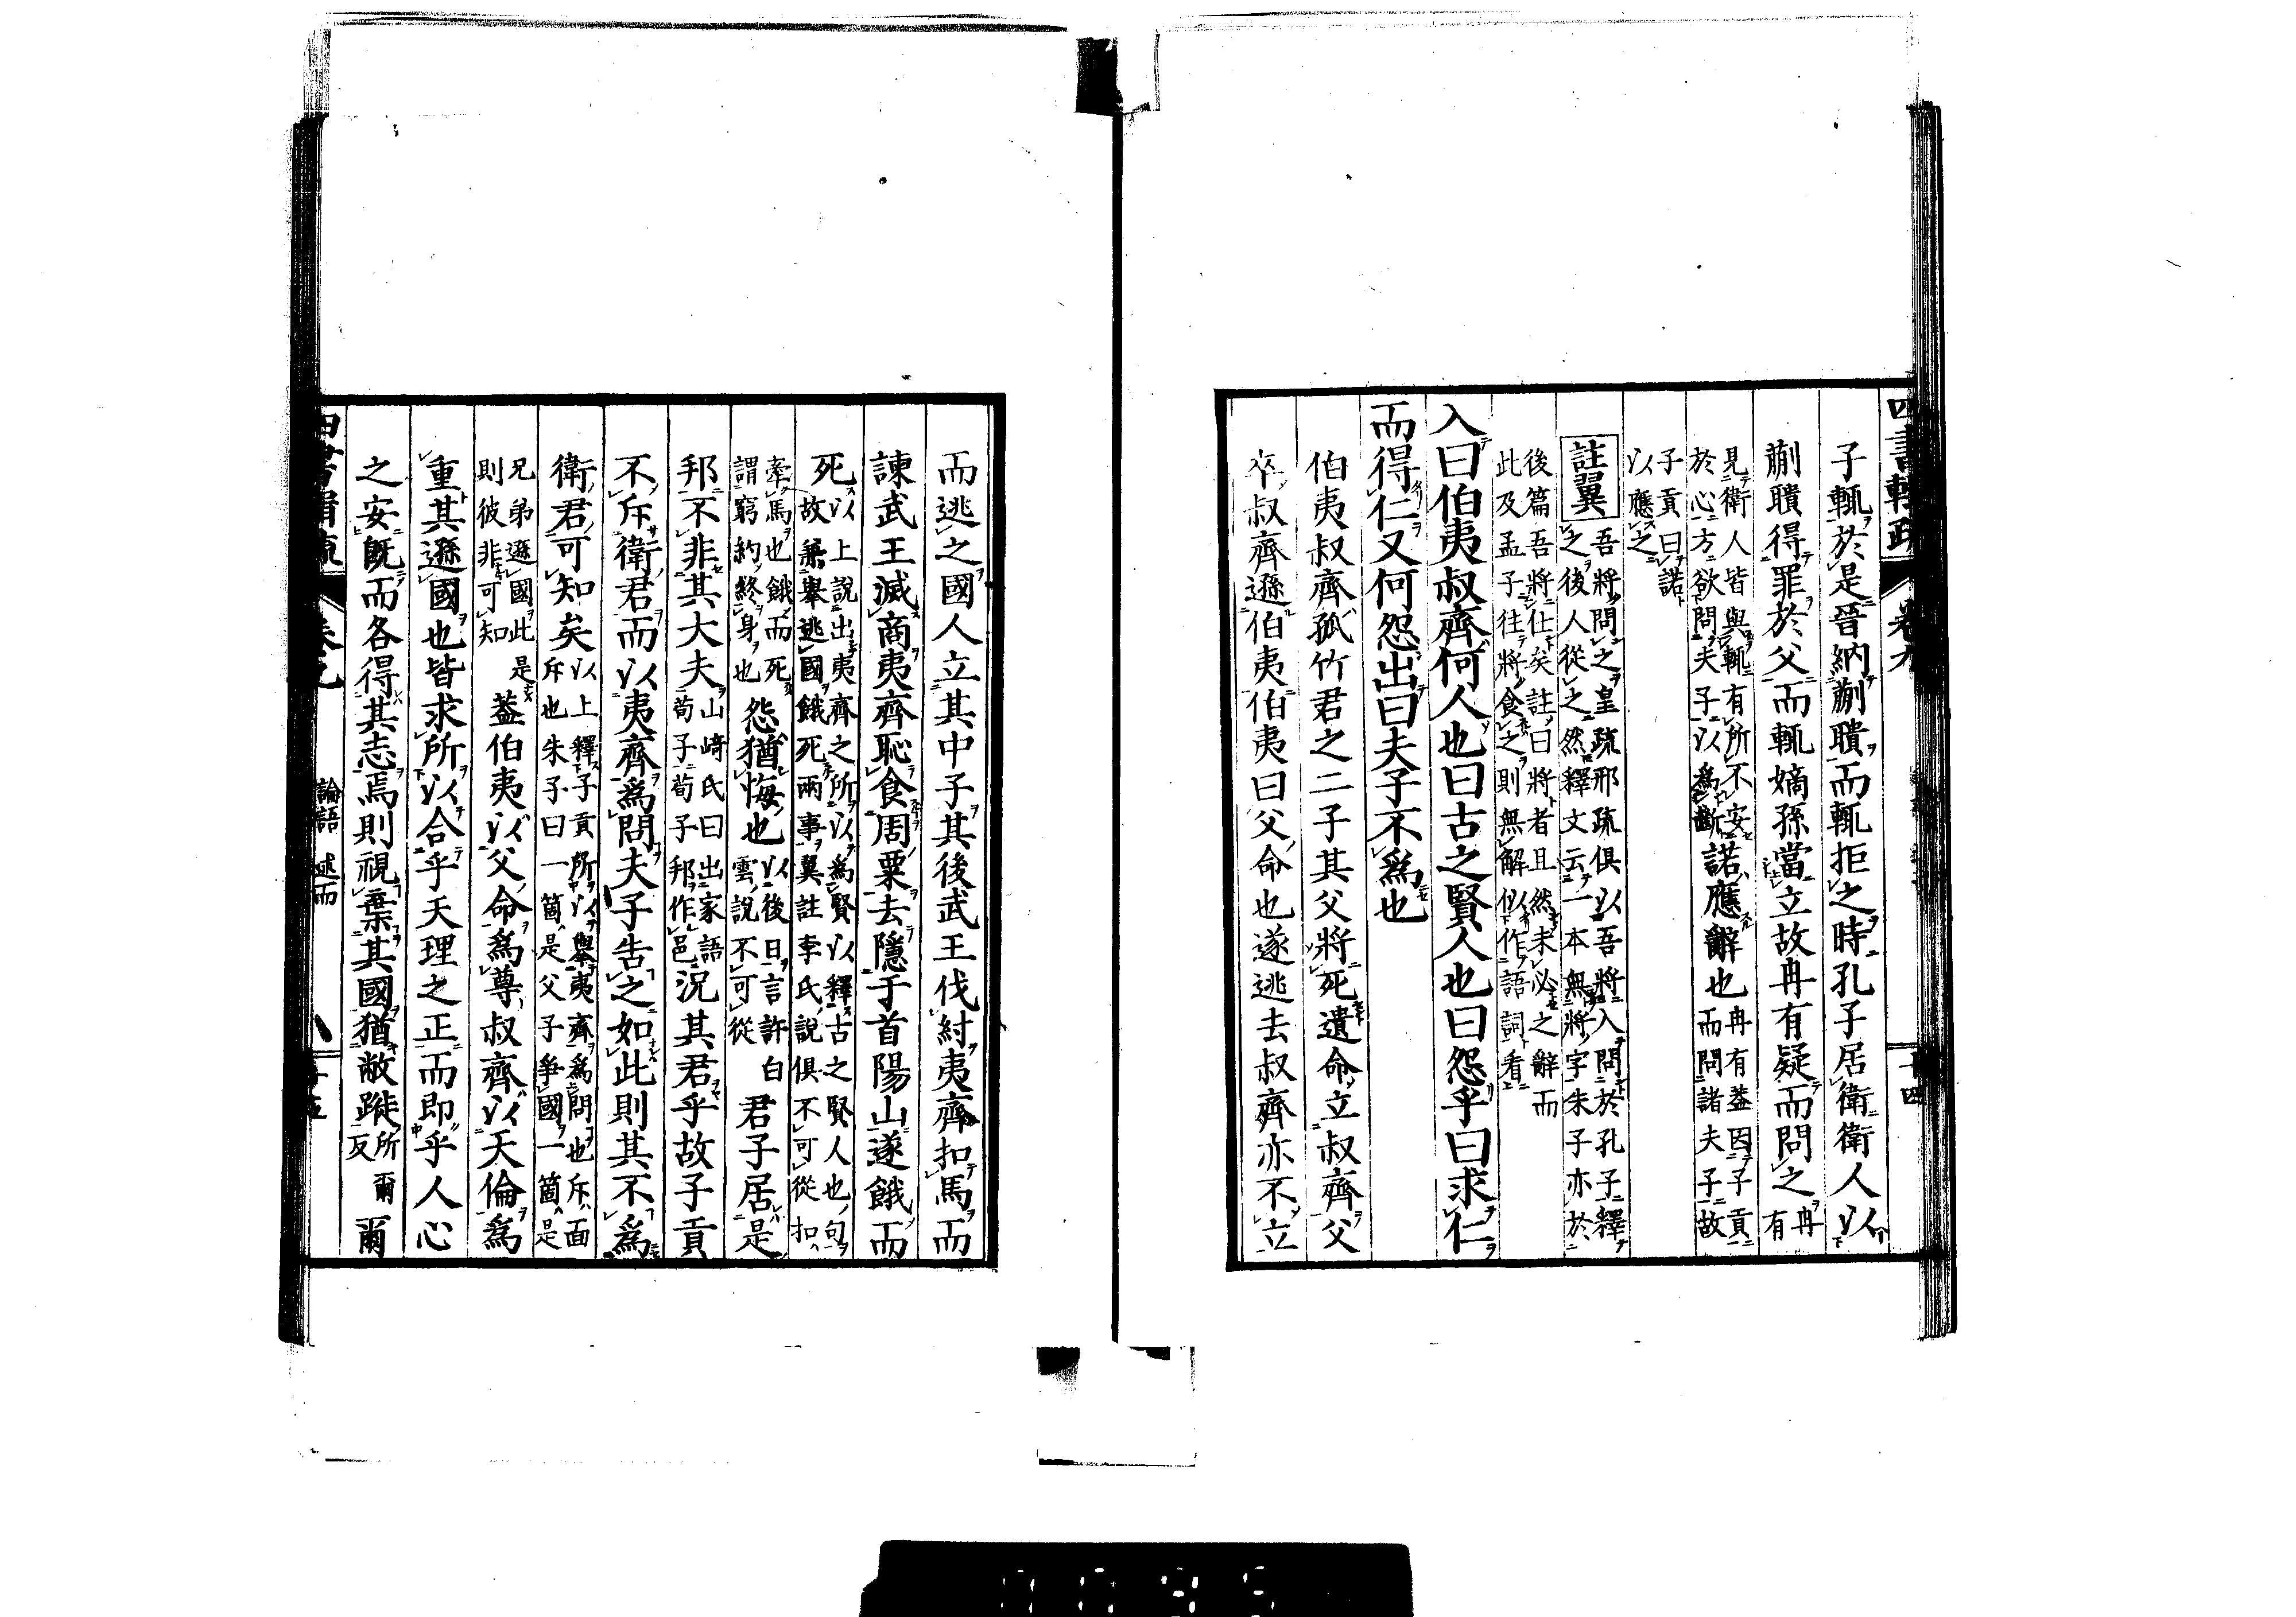 子輒於是晉納蒯聵而輒拒之時孔子居衛衛人以
蒯聵得罪於父而輒嫡孫當立故冉有疑而問之冉有
見衛人皆與輒有所不安
於心方欲問夫子以為斷
諾應辭也
冉有蓋因子貢
而問諸夫子故
子貢曰諾
以應之
註翼
吾將問之皇疏邢疏俱以吾將入問於孔子釋
之後人從之然釋文云一本無將字朱子亦於
後篇吾將仕矣註曰將者且然未必之辭而
此及孟子往將食之則無解似作語詞看
入曰伯夷叔齊何人也曰古之賢人也曰怨乎曰求仁
而得仁又何怨出曰夫子不為也
伯夷叔齊孤竹君之二子其父將死遺命立叔齊父
卒叔齊遜伯夷伯夷曰父命也遂逃去叔齊亦不立
而逃之國人立其中子其後武王伐紂夷齊扣馬而
諫武王滅商夷齊恥食周粟去隱于首陽山遂餓而
死
以上說出夷齊之所以為賢以釋古之賢人也句
故兼舉逃國餓死兩事翼註李氏說俱不可從扣
牽馬也餓而死
謂窮約終身也
怨猶悔也
以後日言許白
雲說不可從
君子居是
邦不非其大夫
山崎氏曰出家語
荀子荀子邦作邑
況其君乎故子貢
不斥衛君而以夷齊為問夫子告之如此則其不為
衛君可知矣
以上釋子貢所以舉夷齊為問也斥面
斥也朱子曰一箇是父子爭國一箇是
兄弟遜國此是
則彼非可知
蓋伯夷以父命為尊叔齊以天倫為
重其遜國也皆求所以合乎天理之正而即乎人心
之安既而各得其志焉則視棄其國猶敝蹝所爾反爾
論語 述而